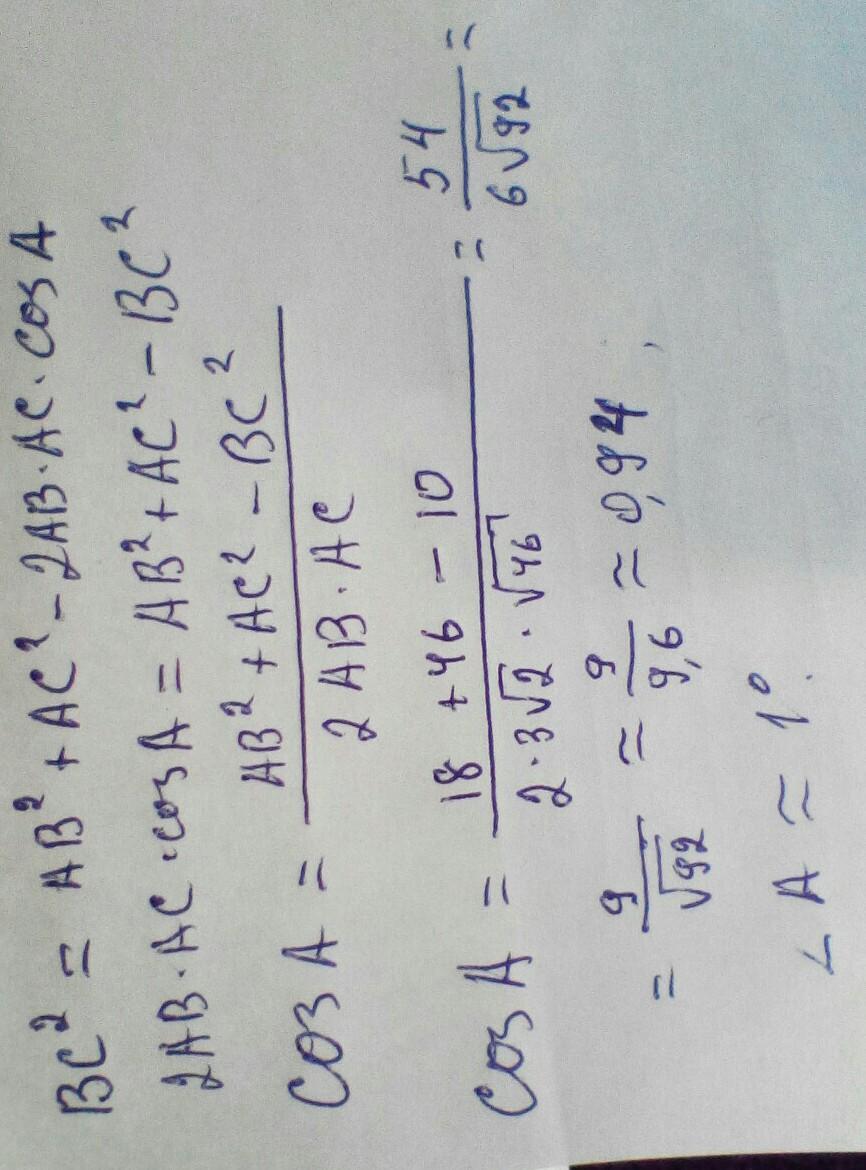 BC² = AB² + AC² - 2AB·AC·cosA
2AB·AC·cosA = AB² + AC² - BC²
cosA = (AB² + AC² - BC²) / (2AB·AC)
cosA = (18 + 46 - 10) / (2·3√2·√46) = 54 / (6√92) =
= 9/√92 ≈ 9/9,6 ≈ 0,94.
∠A ≈ 1°.